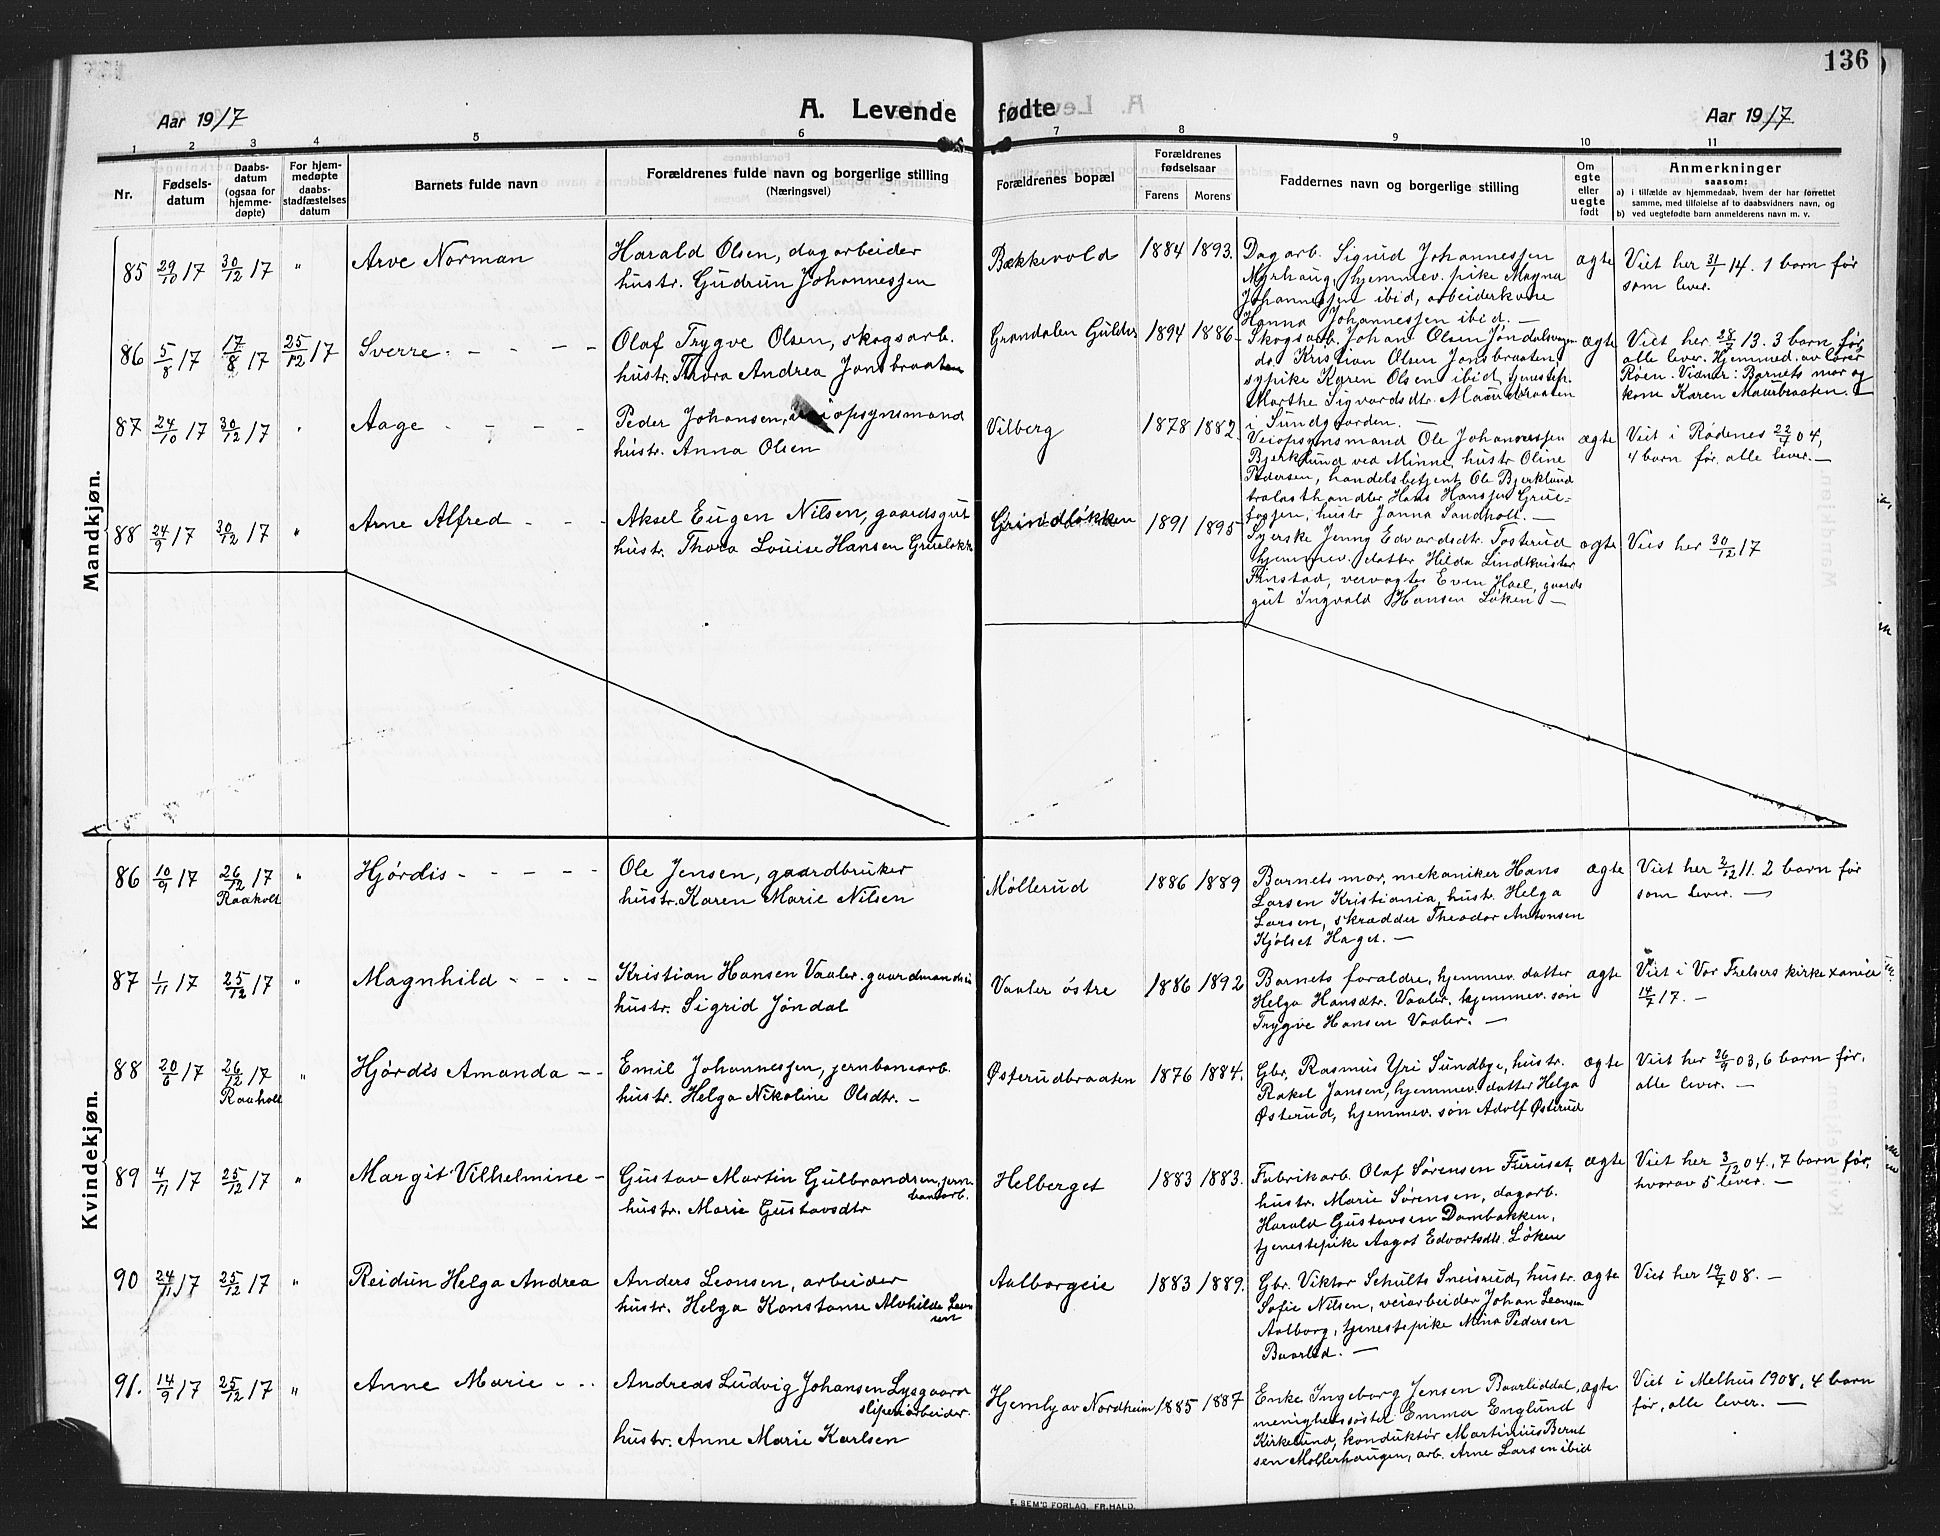 136
A. Levende fødte
Aar 1917
Aar 1917
1 2 3 4 5 6 7 8 9 10 11
Nr.
Fødsels-
datum
Daabs-
datum
(ogsaa for
hjemme-
døpte)
For hjem-
medøpte
daabs-
stadfæstelses
datum
Barnets fulde navn
Forældrenes fulde navn og borgerlige stilling
(Næringsvei)
Forældrenes bopæl
Forældrenes
fødselsaar
Farens Morens
Faddernes navn og borgerlige stilling
Om
egte
eller
uegte
født
Anmerkninger
saasom:
a) i tilfælde av hjemmedaab, hvem der har forrettet
samme, med tilføielse af to daabsvidners navn, og
b) ved uegtefødte barn anmelderens navn m. v.
Mandkjøn.
85 29/10 17 30/12 17 "
Arve Norman
Harald Olsen, dagarbeider
hustr. Gudrun Johannessen
Bækkevold
1884 1893.
Dagarb. Sigurd Johannessen
Myrhaug, hjemmev. pike Magna
Johannessen ibid, arbeiderkone
Hanna Johannessen ibid. —
ægte
Viet her 31/1 14. 1 barn før
som lever.
86 5/8 17 17/8 17 25/12 17
Sverre. - - - -
Olaf Trygve Olsen, skogsarb.
hustr. Thora Andrea Jonsbraaten
Grandalen Gulder
1894 1886-
Skogsarb. Johan Olsen Jøndalsvangen
do. Kristian Olsen Jonsbraaten
sypike Karen Olsen ibid, tjenestep.
Marthe Sigvardsdtr. Maurbraaten
i Sundgaarden. —
ægte
Viet her 28/7 13. 3 barn før
alle lever. Hjemmed. av lærer
Røen. Vidner: Barnets mor og
kone Karen Maurbraaten.
87 24/10 17 30/12 17 "
Aage - - - -
Peder Johansen, veiopsynsmand
hustr. Anna Olsen
Vilberg
1878 1882.
Veiopsynsmand Ole Johannessen
Bjerklund ved Minne, hustr Oline
Pedersen, handelsbetjent Ole Bjerklund
trælasthandler Hans Hanssen Grue-
fossen, hustr Janna Sandholt. —
ægte
Viet i Rødenes 22/7 04,
4 barn før. alle lever. —
88 24/9 17 30/12 17 "
Arne Alfred - - -
Aksel Eugen Nilsen, gaardsgut
hustr. Thora Louise Hansen Grueløkk
Grindløkken
1891 1895
Syerske Jenny Edvardsdtr. Tosterud
hjemmev. datter Hilda Lindkvister
Finstad, vervagter Even Hoel, gaards
gut Ingvald Hansen Løken —
ægte
Vies her 30/12 17
Kvindekjøn.
86 10/9 17 26/12 17 "
Raaholt
Hjørdis - - - - -
Ole Jensen, gaardbruker
hustr. Karen Marie Nilsen
Møllerud
1886 1889
Barnets mor, mekaniker Hans
Larsen Kristiania, hustr. Helga
Larsen, skrædder Theodor Antonsen
Kjølset Haget. —
ægte
Viet her 2/12 11. 2 barn før
som lever. —
87 1/11 17 25/12 17 "
Magnhild - - - -
Kristian Hansen Vaaler. gaardmandsøn
hustr. Sigrid Jøndal
Vaaler østre
1886 1892
Barnets foraldre, hjemmev. datter
Helga Hansdtr. Vaaler. hjemmev. søn
Trygve Hansen Vaaler. —
ægte
Viet i Vor Frelsers kirke xania
14/7 17. —
88 20/6 17 26/12 17 "
Raaholt
Hjørdis Amanda - -
Emil Johannessen, jernbanearb.
hustr. Helga Nikoline Olsdtr. —
Østerudbraaten
1876 1884.
Gbr. Rasmus Yri Sundbye, hustr.
Rakel Jansen, hjemmev. datter Helga
Østerud, hjemmev. søn Adolf Østerud
ægte
Viet her 26/9 03, 6 barn før.
alle lever. —
89 4/11 17 25/12 17 "
Margit Vilhelmine -
Gustav Martin Gulbrandsen, jern
banearb.
hustr. Marie Gustavsdtr
Helberget
1883 1883.
Fabrikarb. Olaf Sørensen Furuset,
hustr. Marie Sørensen, dagarb.
Harald Gustavsen Dambakken,
tjenestepike Aagot Edvartsdtr. Løken
ægte
Viet her 3/12 04, 7 barn før,
hvorav 5 lever. —
90 24/11 17 25/12 17 "
Reidun Helga Andrea
Anders Leonsen, arbeider
hustr. Helga Konstanse Alvhilde Laur
sen
Aalborgeie
1883 1889.
Gbr. Viktor Schults Sneisrud, hustr.
Sofie Nilsen, veiarbeider Johan Leonsen
Aalborg, tjenestepike Mina Pedersen
Baarlid. —
ægte
Viet her 19/7 08. —
91. 14/9 17 25/12 17 "
Anne Marie - - -
Andreas Ludvig Johansen Lysgaard
sliperiarbeider.
hustr. Anne Marie Karlsen
Hjemly av Nordheim
1885 1887
Enke Ingeborg Jensen Baarliddal,
menighetssøster Emma Englund
Kirkesund, konduktør Martinius Bernt
sen Møllerhaugen, arb. Arne Larsen ibid
ægte
Viet i Melhus 1908, 4 barn
før, alle lever. —
E. SEM'S FORLAG, FR.HALD.